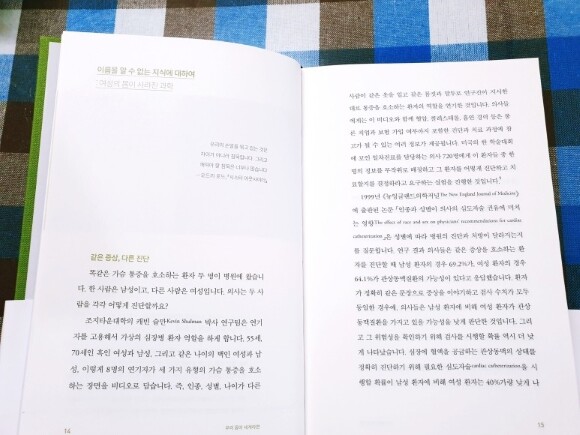 이름을 알 수 없는 지식에 대하여
여성의 몸이 사라진 과학
같은 증상, 다른 진단
똑같은 가슴 통증을 호소하는 환자 두 명이 병원에 왔습니
다. 한 사람은 남성이고, 다른 사람은 여성입니다. 의사는 두 사
람을 각각 어떻게 진단할까요?
조지타운대학의 케빈 슐만Kevin Shulman 박사 연구팀은 연기
자를 고용해서 가상의 심장병 환자 영상을 만들게 합니다. 55세,
70세인 흑인 여성과 남성, 그리고 같은 나이의 백인 여성과 남
성, 이렇게 8명의 연기자가 세 가지 유형의 가슴 통증을 호소하
는 장면을 비디오로 담습니다. 즉, 인종, 성별, 나이가 다른
14
사람이 같은 옷을 입고 같은 몸짓과 말투로 연구진이 지시한
대로 통증을 호소하는 환자의 역할을 연기한 것입니다. 의사들
에게는 이 비디오와 함께 혈압, 콜레스테롤, 흡연 여부 등은 물
론 직업과 보험 가입 여부까지 포함한 진단과 치료 과정에 참
고가 될 수 있는 여러 정보가 제공됩니다. 미국의 한 학술대회
에 모인 일차진료를 담당하는 의사 720명에게 이 환자들 중 한
명의 정보를 무작위로 배정하고 그 환자를 어떻게 진단하고 치
료할지를 결정하라고 요구하는 실험을 진행한 것입니다.
1999년 《뉴잉글랜드의학저널The New England Journal of Medicine》
에 출판된 논문 「인종과 성별이 의사의 심도자술 권유에 미치
는 영향The effect of race and sex on physicians' recommendations for cardiac
catheterization」은 성별에 따라 병원의 진단과 처방이 달라지는지
를 질문합니다. 연구 결과 의사들은 같은 증상을 호소하는 환
자를 진단할 때 남성 환자의 경우 69.2%가, 여성 환자의 경우
64.1%가 관상동맥질환의 가능성이 있다고 응답했습니다. 환자
가 정확히 같은 문장으로 증상을 이야기하고 검사 수치가 모두
동일한 경우에, 의사들은 남성 환자에 비해 여성 환자가 관상
동맥질환을 가지고 있을 가능성을 낮게 판단한 것입니다. 그리
고 그 위험성을 확인하기 위해 검사를 시행할 확률 역시 더 낮
게 나타났습니다. 심장에 혈액을 공급하는 관상동맥의 상태를
정확히 진단하기 위해 필요한 심도자술cardiac catheterization을 시
행할 확률이 남성 환자에 비해 여성 환자는 40%가량 낮게 나
15